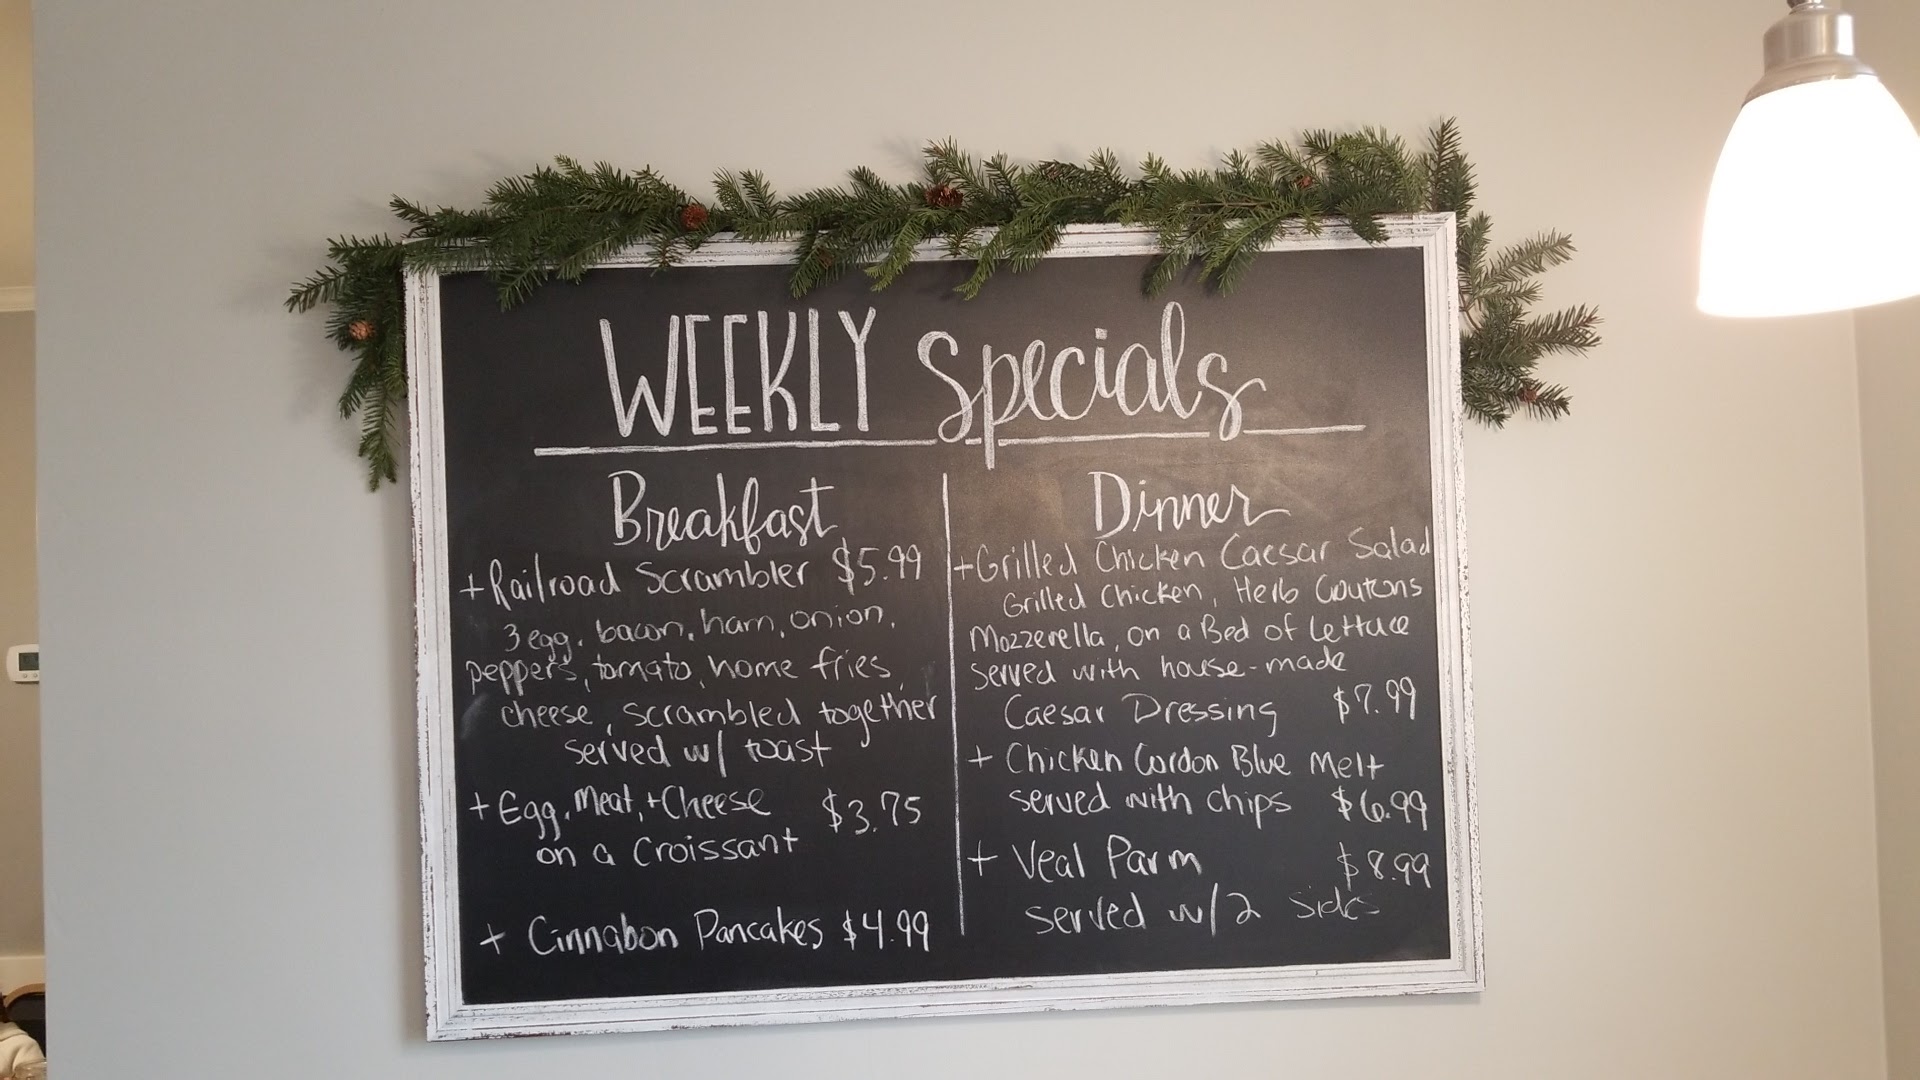 WEEKLY Specials
Breakfast
+Railroad Scrambler $5.99
3 egg, bacon, ham, onion,
peppers, tomato, home fries,
cheese, scrambled together
served w/ toast
+ Egg, Meat, + Cheese $3.75
on a Croissant
+ Cinnabon Pancakes $4.99
Dinner
+Grilled Chicken Caesar Salad
Grilled Chicken, Herb Croutons
Mozzerella, on a Bed of Lettuce
served with house-made
Caesar Dressing $7.99
+ Chicken Cordon Blue Melt
served with chips $6.99
+ Veal Parm $8.99
served w/2 sides